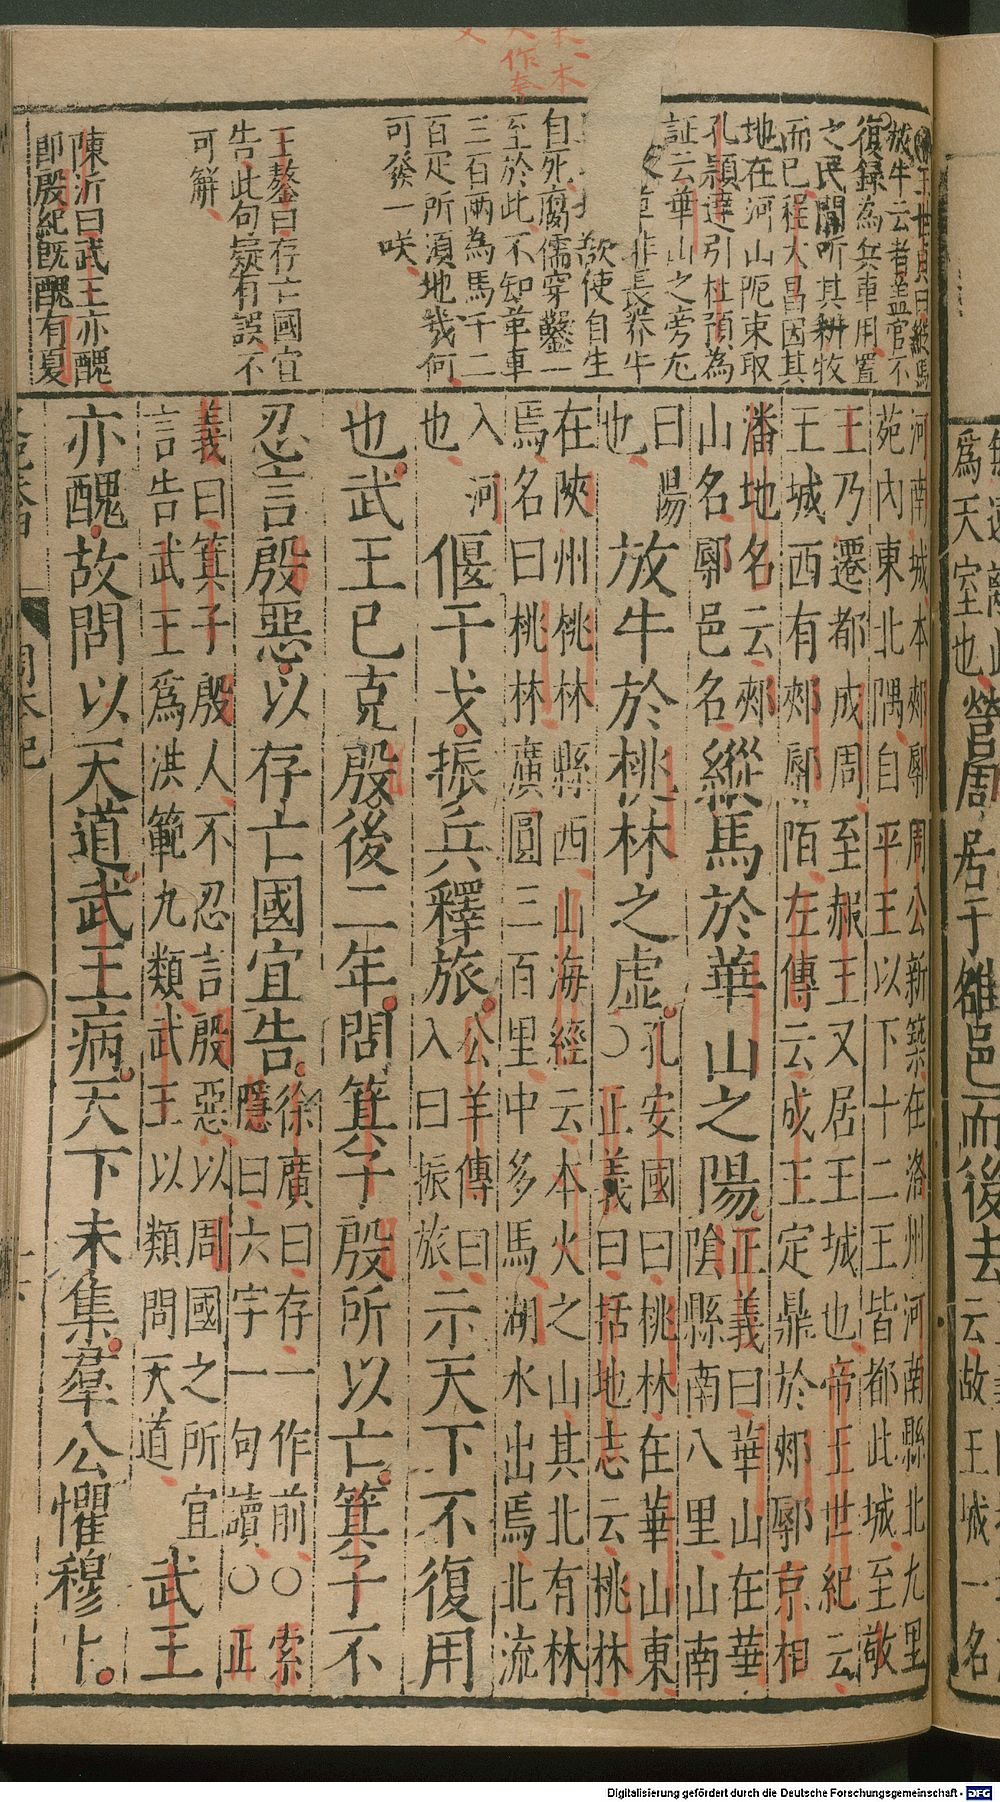 爲天室也
營周居于雒邑而後去
云故王城一名
一本
作夸
父
王世貞曰縱馬
放牛云者蓋官不
復録為兵車用置
之民間所其耕牧
而已程大昌因其
地在河山阨束取
孔穎達引杜預為
証云華山之旁尢
草非長养牛
欲使自生
自死腐儒穿鑿一
至於此不知革車
三百兩為馬千二
百疋所須地幾何
可發一咲
王鏊曰存亡國宜
告此句疑有誤不
可觧
陳沂曰武王亦醜
即殷紀既醜有夏
河南城本郟鄏周公新築在洛州河南縣北九里
苑內東北隅自平王以下十二王皆都此城至敬
王乃遷都成周至赧王又居王城也帝王世紀云
王城西有郟鄏陌左傳云成王定鼎於郟鄏京相
潘地名云郟
山名鄏邑名
縱馬於華山之陽
正義曰華山在華
陰縣南八里山南
曰陽
也
放牛於桃林之虛
孔安國曰桃林在華山東
○正義曰括地志云桃林
在陝州桃林縣西山海經云本火之山其北有林
焉名曰桃林廣圓三百里中多馬湖水出焉北流
入河
也
偃干戈振兵釋旅
公羊傳曰
入曰振旅
示天下不復用
也武王已克殷後二年問箕子殷所以亡箕子不
忍言殷惡以存亡國宜告
徐廣曰存一作前○索
隱曰六字一句讀○正
義曰箕子殷人不忍言殷惡以周國之所宜
言告武王爲洪範九類武王以類問天道
武王
亦醜故問以天道武王病天下未集羣公懼穆卜
周本紀
Digitalisierung gefördert durch die Deutsche Forschungsgemeinschaft - DFG